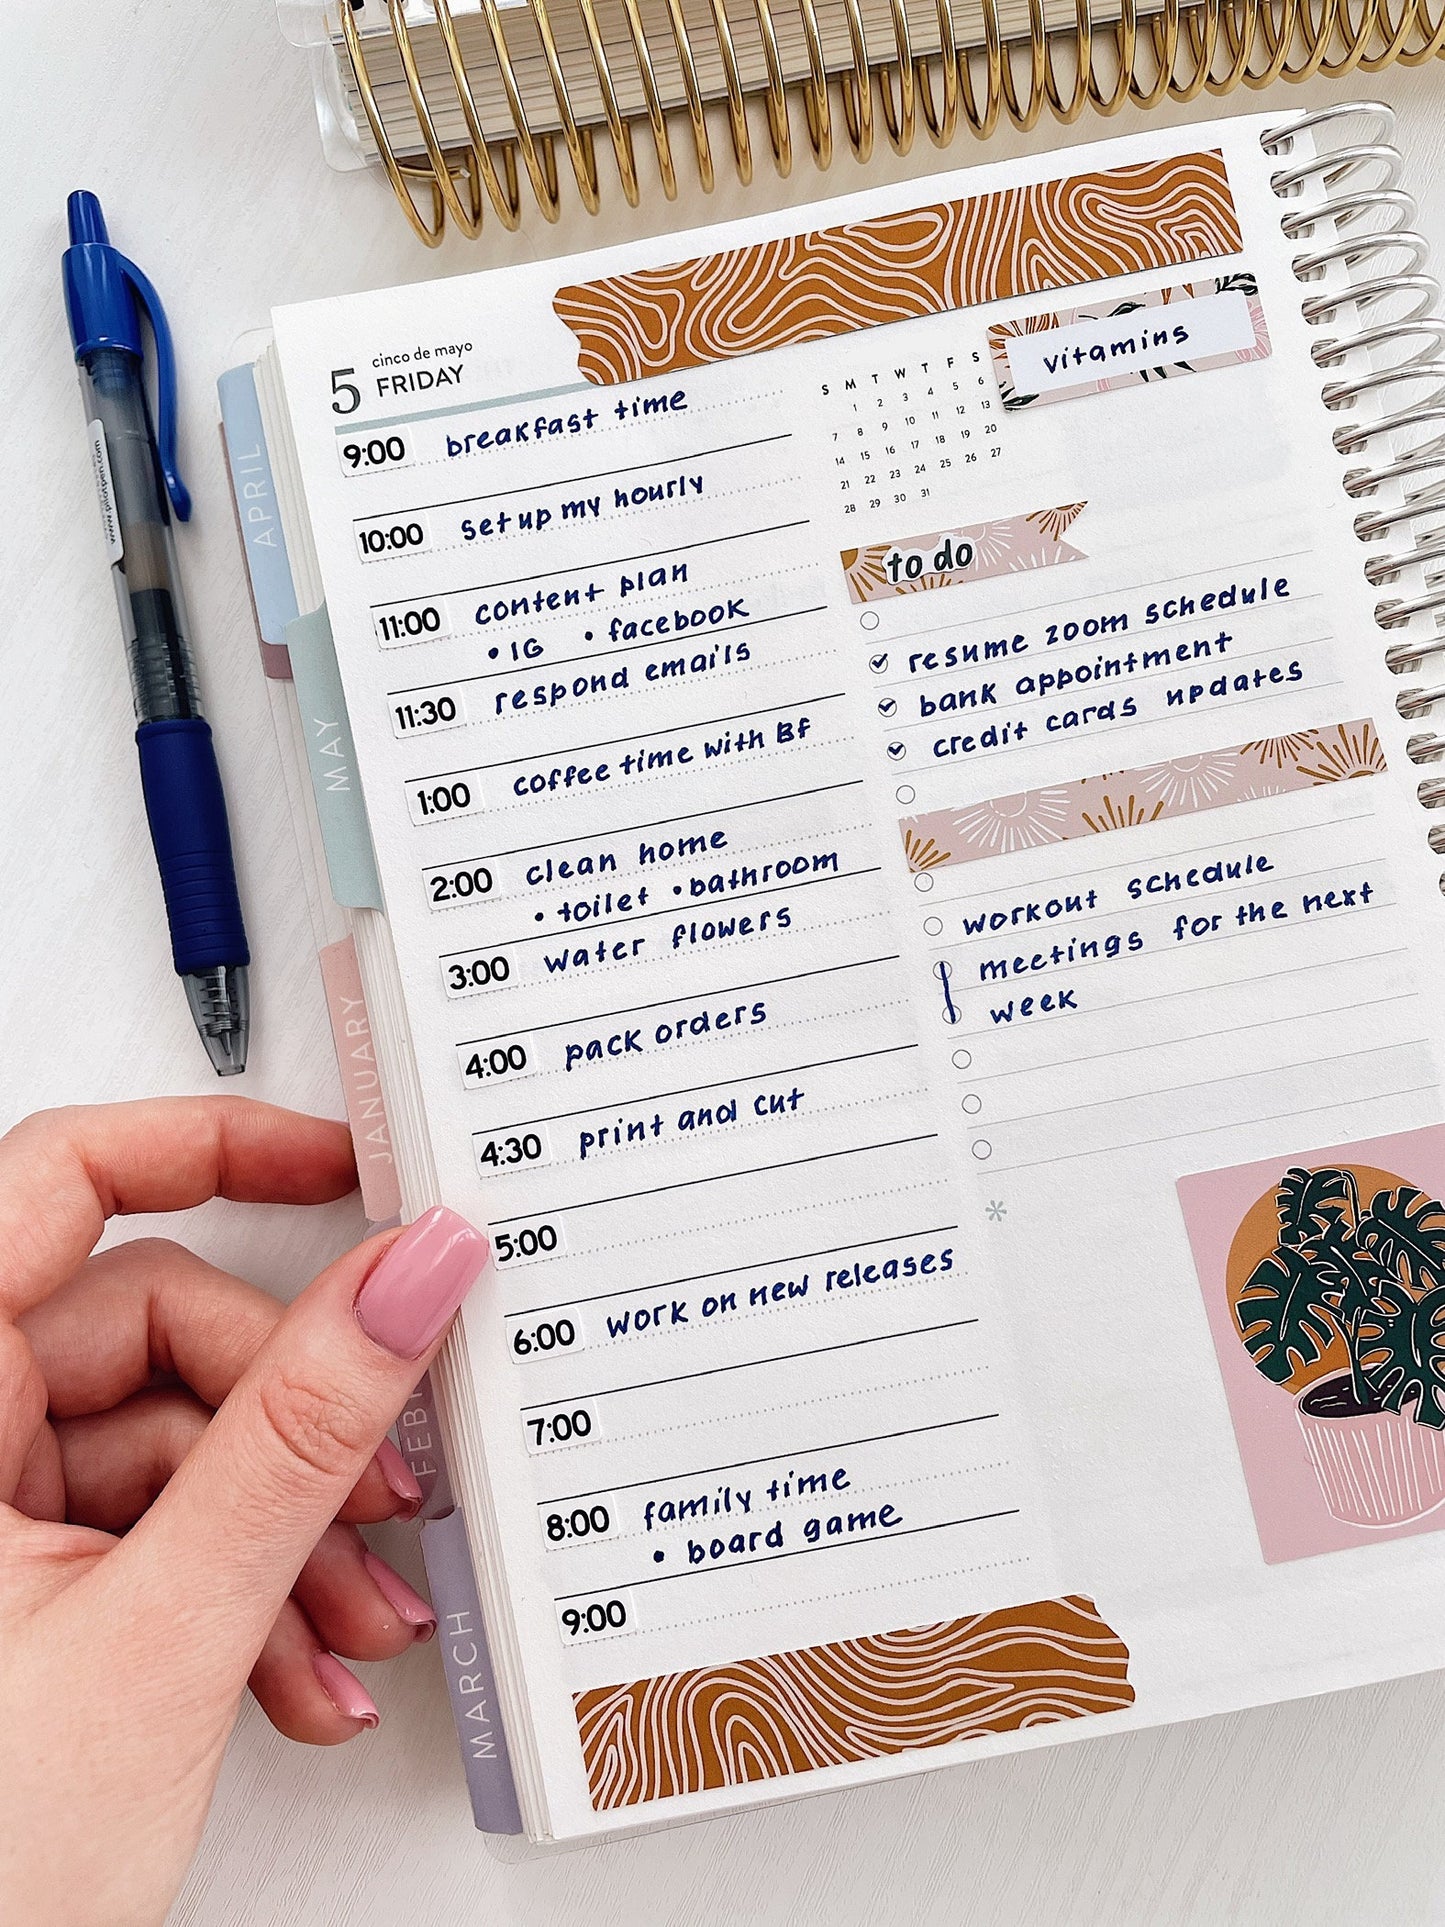 cinco de mayo
5 FRIDAY
9:00 breakfast time
10:00 set up my hourly
11:00 content plan
• IG • facebook
11:30 respond emails
1:00 coffee time with Bf
2:00 clean home
• toilet • bathroom
3:00 water flowers
4:00 pack orders
4:30 print and cut
5:00
6:00 work on new releases
7:00
8:00 family time
• board game
9:00
S M T W T F S
1 2 3 4 5 6
7 8 9 10 11 12 13
14 15 16 17 18 19 20
21 22 23 24 25 26 27
28 29 30 31
vitamins
to do
resume zoom schedule
bank appointment
credit cards updates
workout schedule
meetings for the next
week
APRIL
MAY
JANUARY
FEB
MARCH
www.pilotpen.com